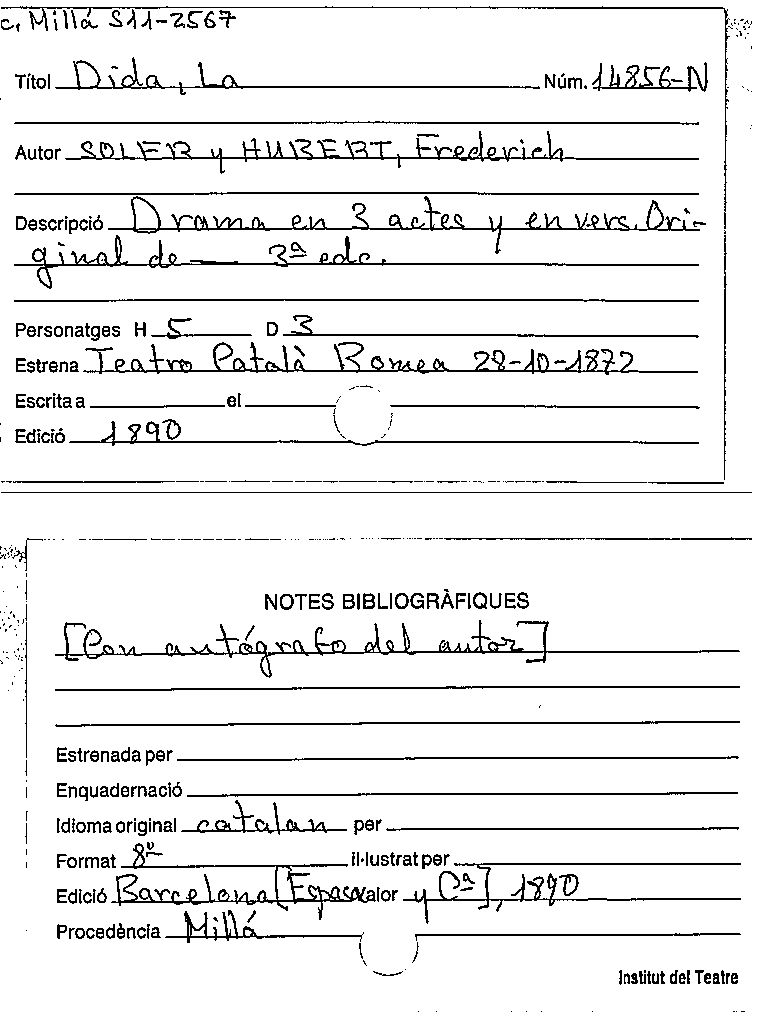 c. Millá S11-2567
Títol Dida, La Núm. 14856-N
Autor SOLER y HUBERT, Frederich
Descripció Drama en 3 actes y en vers. Ori-
ginal de — 3ª edc.
Personatges H 5 D 3
Estrena Teatro Català Romea 28-10-1872
Escrita a el
Edició 1890
NOTES BIBLIOGRÀFIQUES
[Con autógrafo del autor]
Estrenada per
Enquadernació
Idioma original catalan per
Format 8º il·lustrat per
Edició Barcelona [Espasa valor y Cª], 1890
Procedència Millá
Institut del Teatre